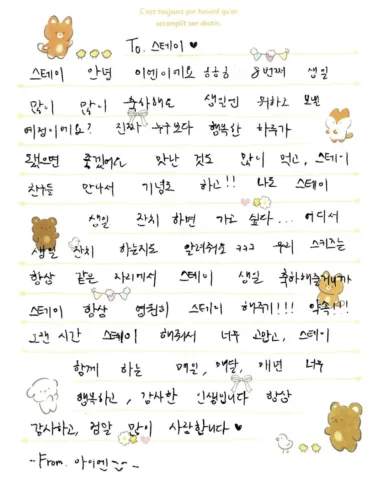 C'est toujours par hasard qu'on
accomplit son destin.
To. 스테이 ♥
스테이 안녕 아이엔이에요 ㅎㅎㅎ 8번째 생일
많이 많이 축하해요 생일엔 뭐하고 보낼
예정이에요? 진짜 누구보다 행복한 하루가
됐으면 좋겠어요 맛난 것도 많이 먹고, 스테이
친구들 만나서 기념도 하고!! 나도 스테이
생일 잔치 하면 가고 싶다... 어디서
생일 잔치 하는지도 알려줘요 ㅋㅋㅋ 우리 스키즈는
항상 같은 자리에서 스테이 생일 축하해줄거니까
스테이 항상 영원히 스테이 해주기!!! 약속!!!
오랜 시간 스테이 해줘서 너무 고맙고, 스테이
함께 하는 매일, 매달, 매년 너무
행복하고, 감사한 인생입니다 항상
감사하고, 정말 많이 사랑합니다 ♥
-From. 아이엔